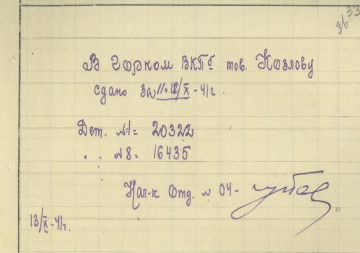 33
В Горком ВКПб тов. Козлову
сдано за 11-12/X-41г.
Дет. №1= 20322
„ „ №8= 16435
Нач-к Отд. № 04-
13/X-41г.